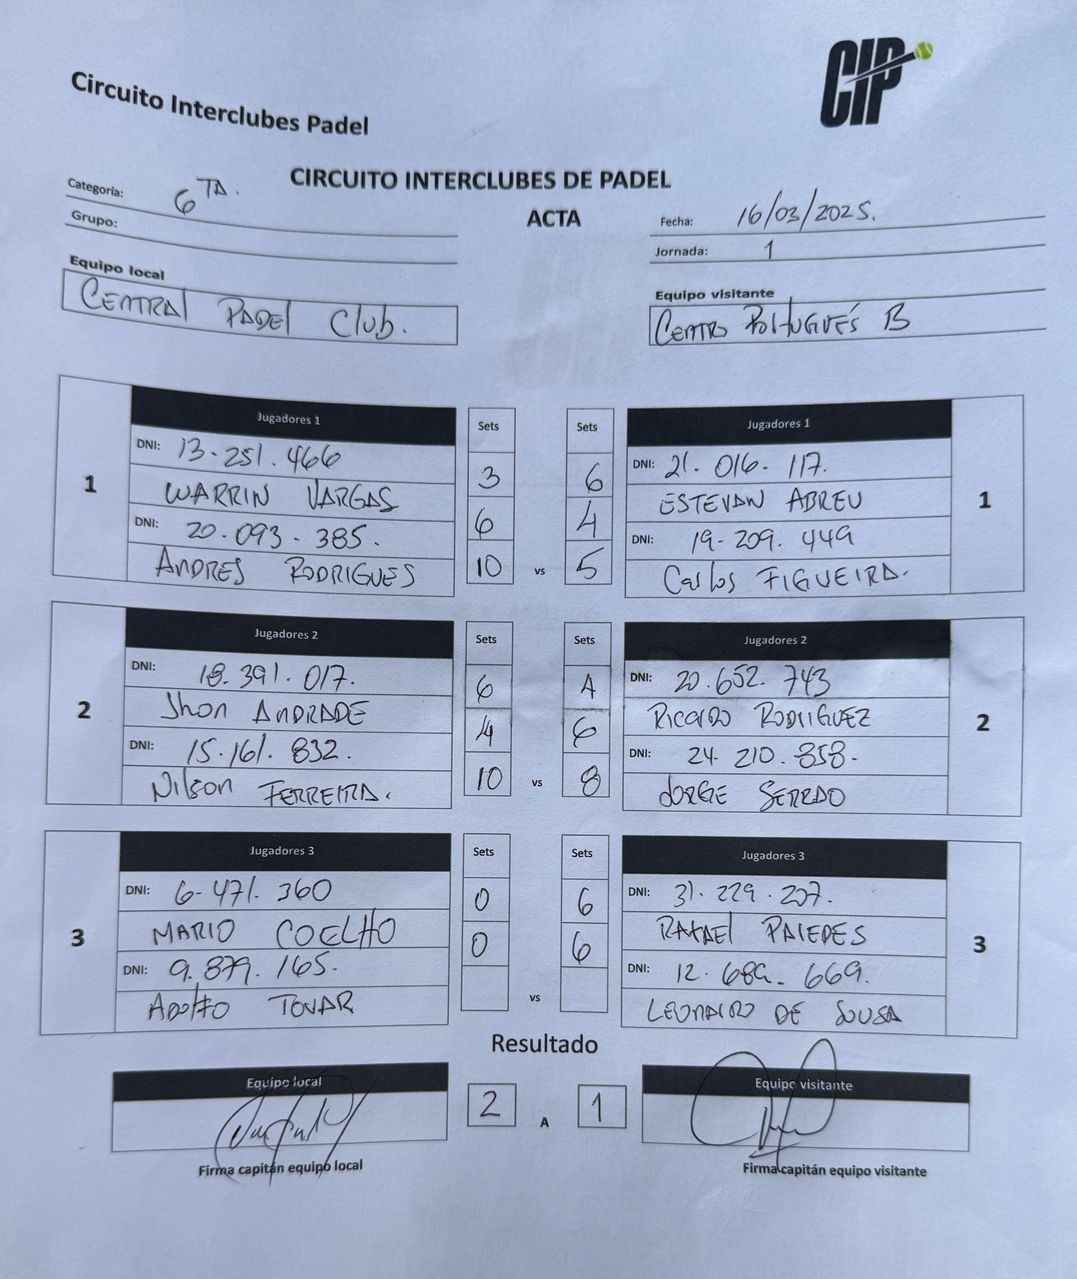 Circuito Interclubes Padel
CIP
CIRCUITO INTERCLUBES DE PADEL
ACTA
Categoría: 6TA.
Grupo:
Fecha: 16/03/2025.
Jornada: 1
Equipo local
CENTRAL PADEL Club.
Equipo visitante
CENTRO PORTUGUÉS B
1
Jugadores 1
DNI: 13.251.466
WARRIN VARGAS
DNI: 20.093.385.
ANDRES RODRIGUES
Sets
3
6
10
vs
Sets
6
4
5
Jugadores 1
DNI: 21.016.117.
ESTEVAN ABREU
DNI: 19-209.449
Carlos FIGUEIRA.
1
2
Jugadores 2
DNI: 18.391.017.
Jhon ANDRADE
DNI: 15.161.832.
Nilson FERREIRA.
Sets
6
4
10
vs
Sets
4
6
8
Jugadores 2
DNI: 20.652.743
RICARDO RODRIGUEZ
DNI: 24-210.858-
JORGE SERRAO
2
3
Jugadores 3
DNI: 6-471.360
MARIO COELHO
DNI: 9.879.165.
ADOLFO TOVAR
Sets
0
0
vs
Sets
6
6
Jugadores 3
DNI: 31.229.207.
RAFAEL PAREDES
DNI: 12.689.669.
LEONARDO DE SOUSA
3
Resultado
Equipo local
2
A
1
Equipo visitante
Firma capitán equipo local
Firma capitán equipo visitante